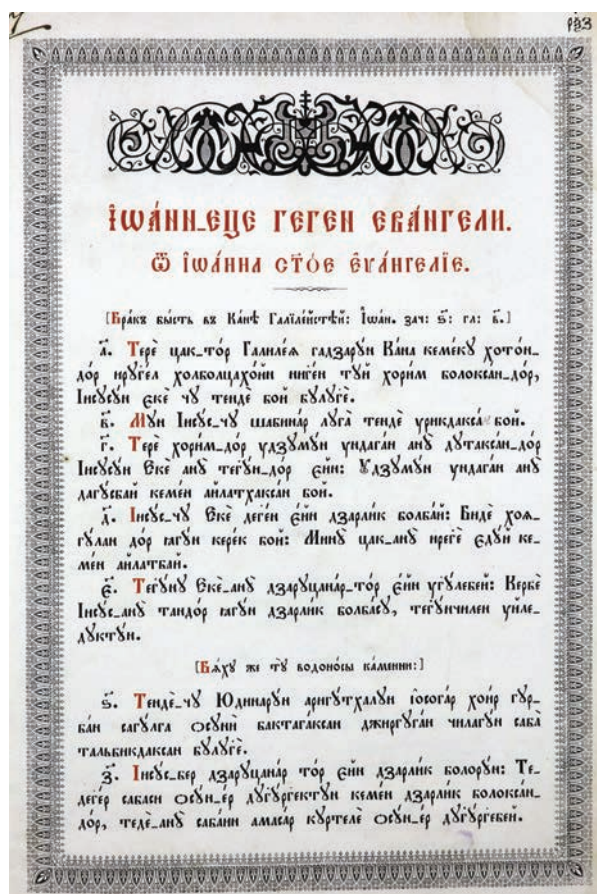 І҆ѡа́нн-еце геген ева́нгели.
Ѿ І҆ѡа́нна ст҃о́е є҆ѵа́нгелїе.
[Бра́къ бы́сть въ Ка́нѣ Галїле́йстѣй: І҆ѡа́н. зач: ѕ҃: гл: в҃.]
а҃. Терѐ цак-то́р Галиле́ѧ гадзару́н Ка́на кемѐкꙋ хото́н-
до́р нрꙋге́л холболцахо́йн инге́н тꙋ́й хори́м болокса́н-до́р,
Інсꙋсꙋ́н є҆кѐ чꙋ тендѐ бой бꙋлꙋгѐ.
в҃. Мꙋ́н Інсꙋ́с-чꙋ шабина́р лꙋга̀ тендѐ ꙋрикдакса̀ бой.
г҃. Терѐ хори́м-до́р ꙋдзꙋмꙋ́н ꙋндага́н анꙋ̀ дꙋтакса́н-до́р
Інсꙋсꙋ́н Єкѐ анꙋ̀ тегꙋ́н-до́р є҆́йн: Ѹдзꙋмꙋ́н ꙋндага́н анꙋ̀
дагꙋсба́й кеме́н айлатхакса́н бой.
д҃. Інсꙋ́с-чꙋ Єкѐ деге́н є҆́йн дзарли́к болба́й: Бидѐ хоѧ-
гꙋла́н до́р ꙗгꙋ́н кере́к бой: Минꙋ̀ цак-анꙋ̀ ирегѐ є҆дꙋ́й ке-
ме́н айлатба́й.
є҃. Тегꙋнꙋ̀ Єкѐ-анꙋ̀ дзарꙋцана́р-то́р є҆́йн ꙋгꙋлебе́й: Кербѐ
Інсꙋ́с-анꙋ̀ тандо́р ꙗгꙋ́н дзарли́к болбасꙋ̀, тегꙋ́нчиле́н ꙋйле-
дꙋктꙋ́н.
[Бѧ́хꙋ же тꙋ̀ водоно́сы ка́менни:]
ѕ҃. Тендѐ-чꙋ Юдинарꙋ́н аригꙋтхалꙋ́н іосога́р хои́р гꙋр-
ба́н сагꙋлга̀ ѻсꙋни̇̀ бактагакса́н джиргꙋга́н чилагꙋ́н саба̀
тальбикдакса́н бꙋлꙋгѐ.
з҃. Інсꙋ́с-бер дзарꙋцана́р то́р є҆́йн дзарли́к болорꙋ́н: Те-
деге́р сабаси ѻсꙋ́н-е́р дꙋгꙋргектꙋ́н кеме́н дзарли́к болокса́н-
до́р, тедѐ-анꙋ̀ саба́йн амаса́р кꙋртелѐ ѻсꙋ́н-е́р дꙋгꙋргебе́й.